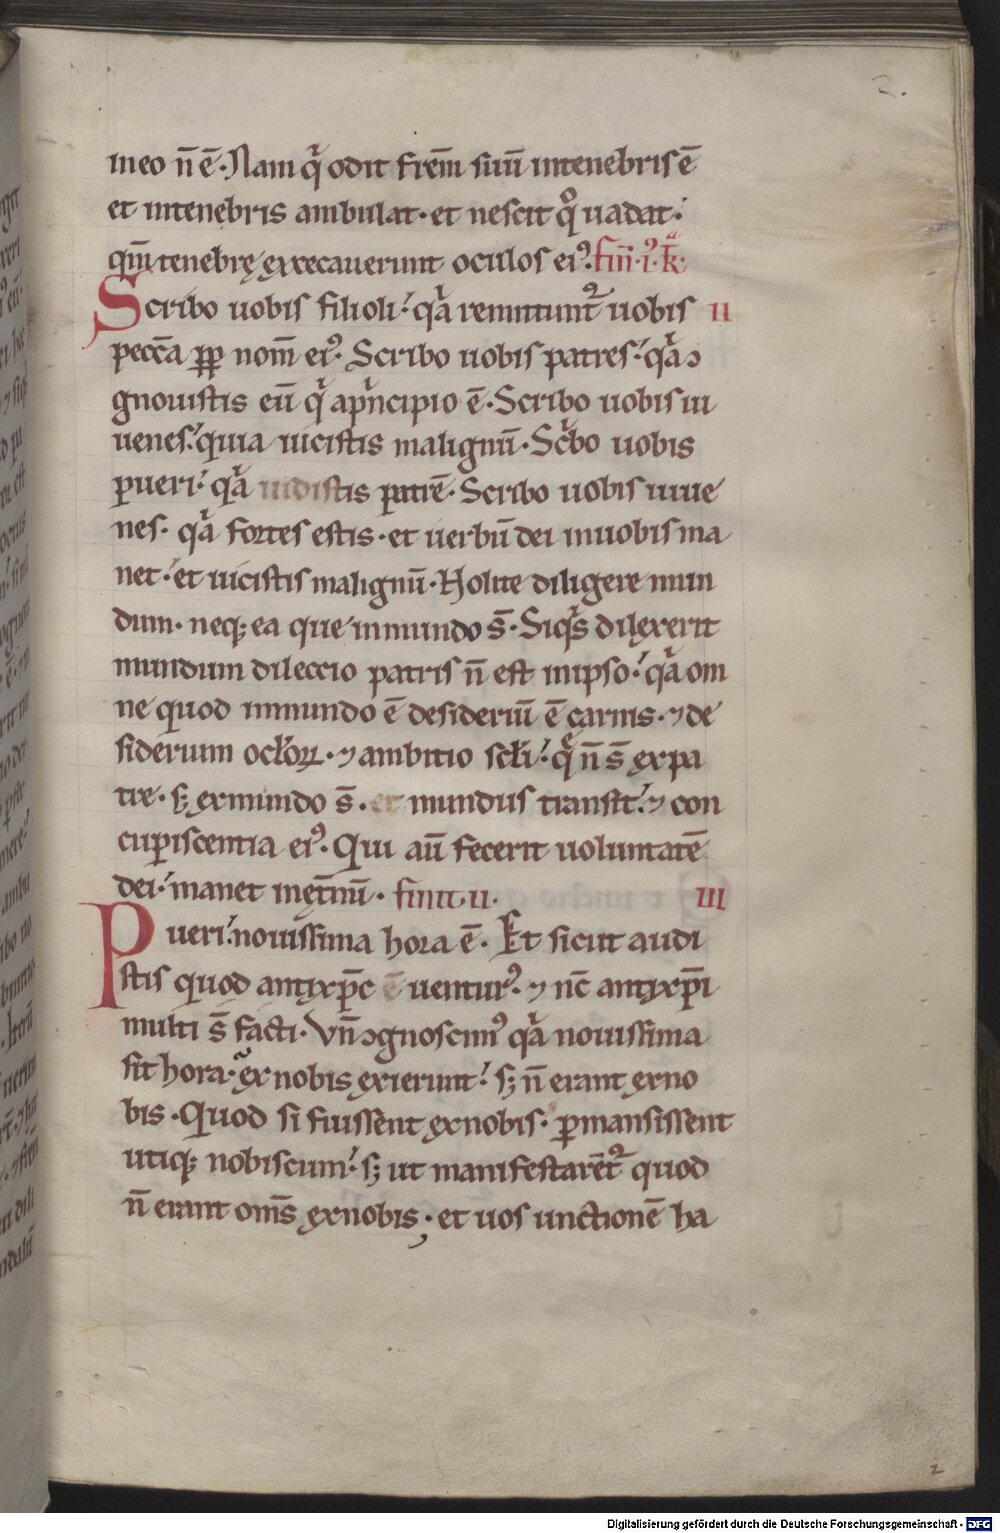 2.
in eo n̄ ē. Nam qͥ odit frēm suū intenebris ē
et intenebris ambulat. et nescit qͦ uadat.
qm̄ tenebrę exrecauerunt oculos eiꝰ. fin̄. i. k̄.
Scribo uobis filioli. qͣa remittuntᷣ uobis II
peccā ꝓp nom̄ eiꝰ. Scribo uobis patres. qͣa ↄ
gnouistis eū qͥ apͥncipio ē. Scribo uobis iu
uenes. quia uicistis malignū. Scͥbo uobis
pueri. qͣa uidistis patrē. Scribo uobis iuue
nes. qͣa fortes estis. et uerbū dei inuobis ma
net. et uicistis malignū. Nolite diligere mun
dum. neqꝫ ea que inmundo s̄. Siqͥs dilexerit
mundum dileccio patris n̄ est inipso. qͣa om
ne quod inmundo ē desideriū ē carnis. ⁊ de
siderium ocl̄oꝝ. ⁊ ambitio scl̄i. qͤ n̄ s̄ expa
tre. sꝫ exmundo s̄. et mundus transit. ⁊ con
cupiscentia eiꝰ. Qui aū fecerit uoluntatē
dei. manet inęt̄nū. finit. II. III
Pueri. nouissima hora ē. Et sicut audi
stis quod antixp̄c ē uenturꝰ. ⁊ nc̄ antixp̄i
multi s̄ facti. Vn̄ ↄgnoscimꝰ qͣa nouissima
sit hora. ex nobis exierunt. sꝫ n̄ erant exno
bis. Quod si fuissent exnobis. ꝑmansissent
utiqꝫ nobiscum. sꝫ ut manifestarēt᷑ quod
n̄ erant om̄s exnobis. et uos unctionē ha
2
Digitalisierung gefördert durch die Deutsche Forschungsgemeinschaft - DFG